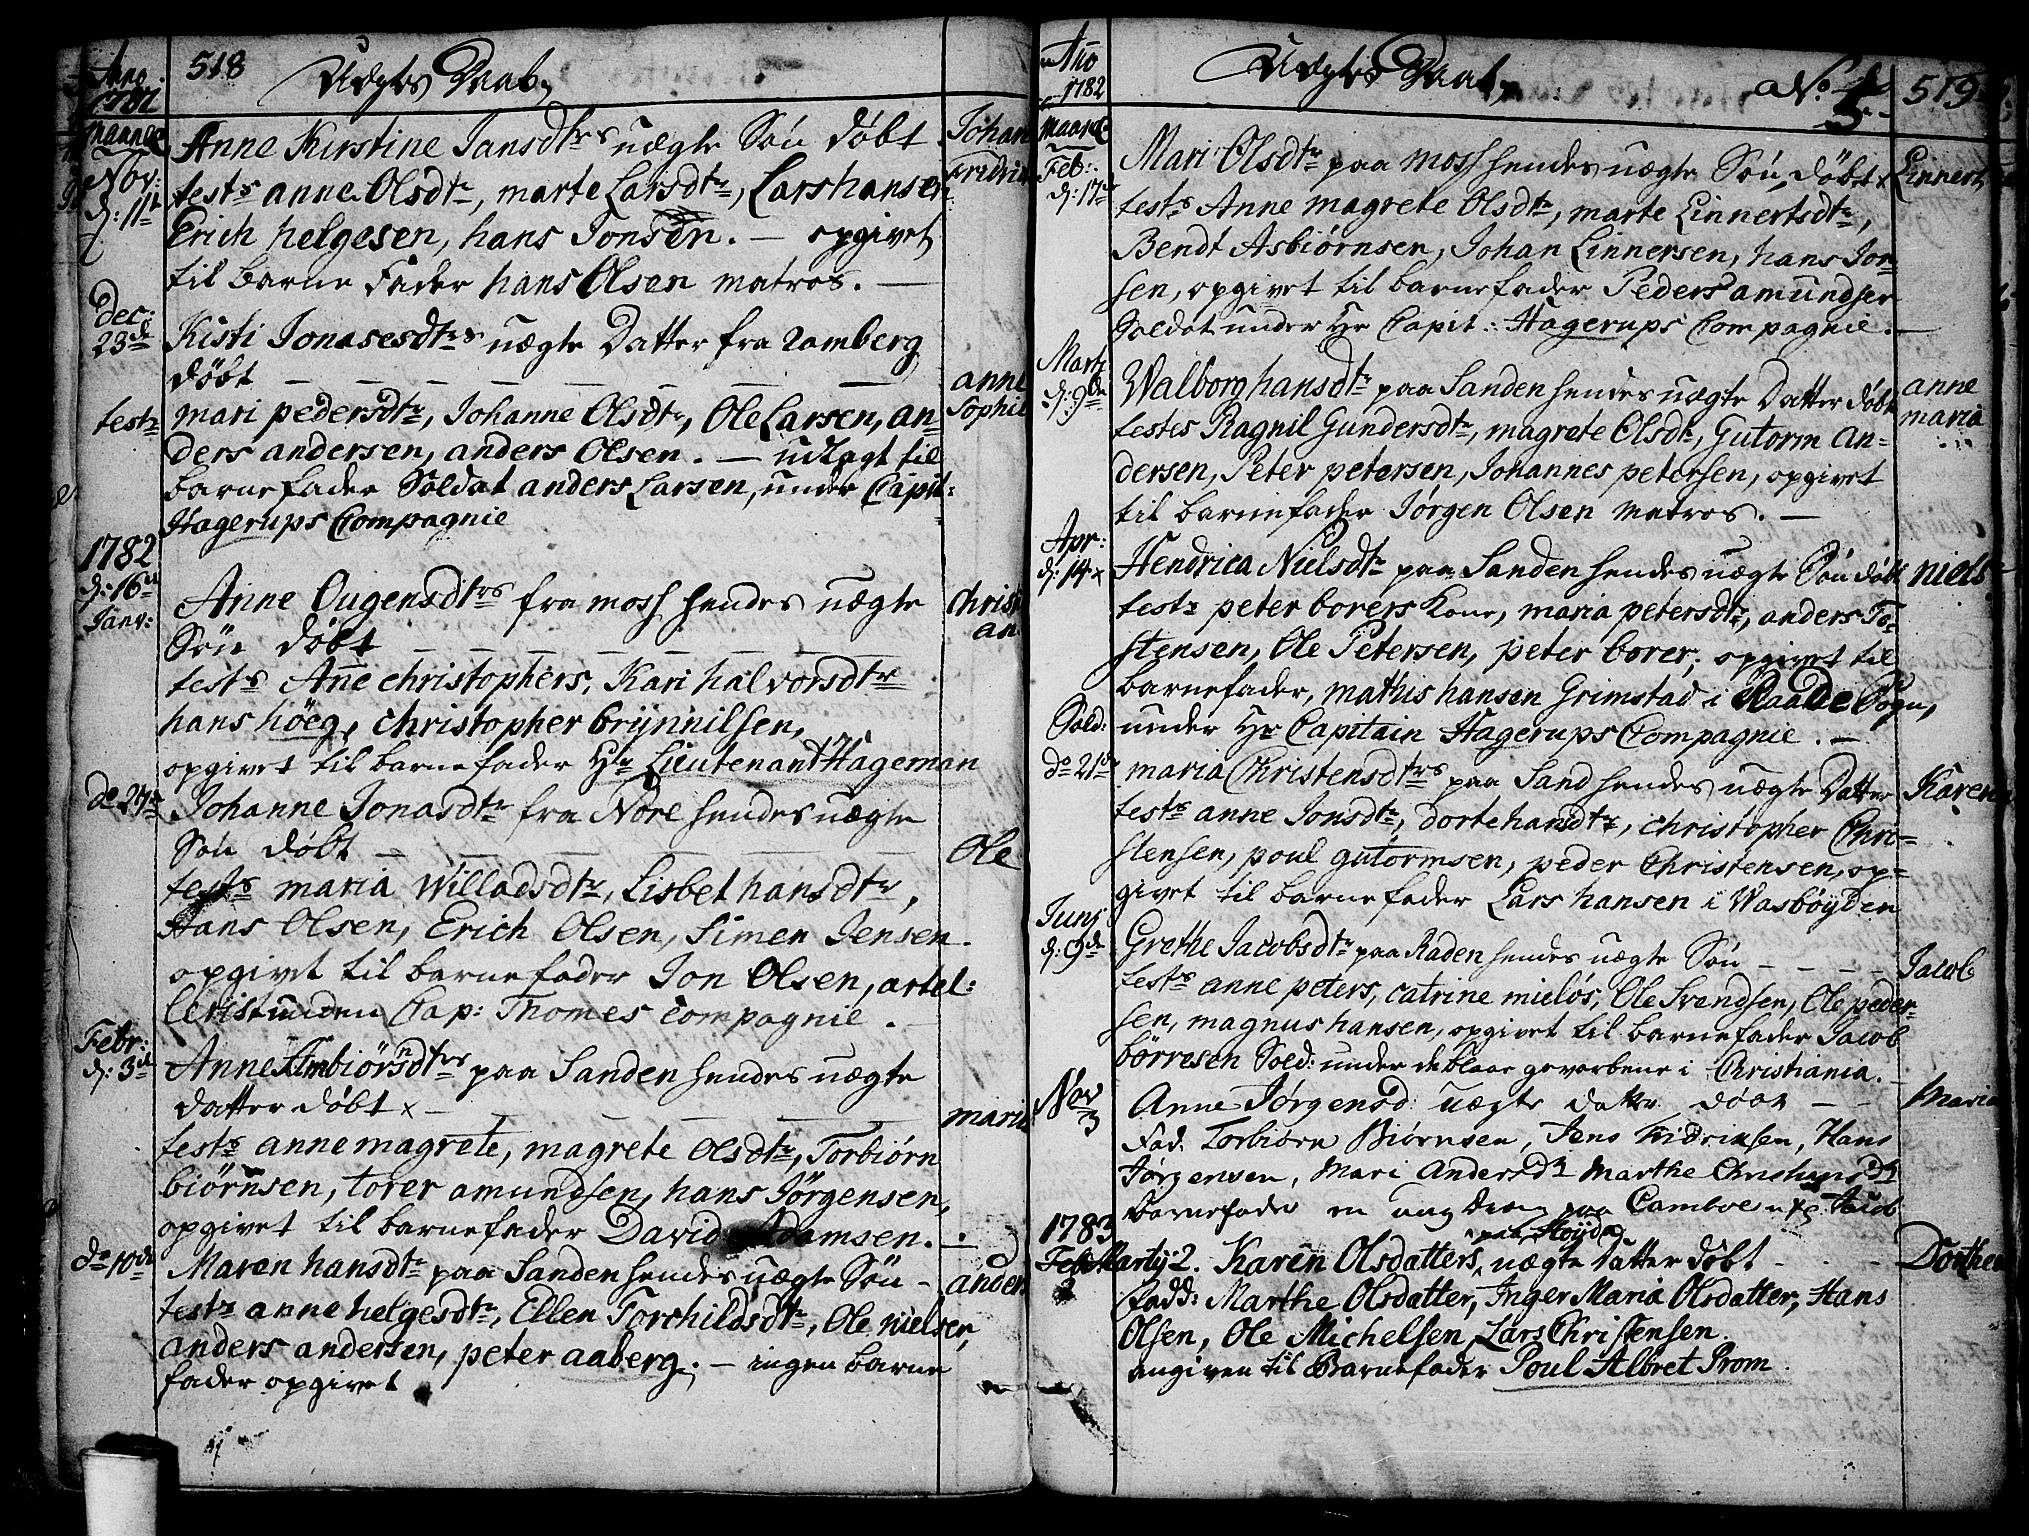 Anno 1781
518
Uægte Daab,
Anne Kirstine Jansdtrs uægte Søn døbt
Johan Fridrich
Nov: d: 11te
test: anne Olsdtr, marte Larsdtr, Lars hansen
Erich helgesen, hans Jonsen. — opgivet
til Barne Fader hans Olsen matros. —
Dec: 23de
Kisti Jonasesdtrs uægte Datter fra ramberg
døbt — — — — — — —
anne Sophie
test:
mari pedersdtr, Johanne Olsdtr, Ole Larsen, an-
ders andersen, anders Olsen. — udlagt til
barnefader Soldat anders Larsen, under Capit:
Hagerups Compagnie
1782
d: 16de Janv:
Anne Ougensdtrs fra moss hendes uægte
Søn døbt — — — — — —
christian
test: Anne christophers, Kari halvorsdtr
hans höeg, christopher brynnilsen,
opgivet til barnefader Hr Lieutenant Hageman
do 27de
Johanne Jonasdtr fra Nore hendes uægte
Søn døbt — — — — —
Ole
test: maria Willadsdtr, Lisbet hansdtr,
Hans Olsen, Erich Olsen, Simen Jensen.
opgivet til barnefader Jon Olsen, artel-
lerist unden Cap: Thomes Compagnie.
Febr: d: 3de
Anne paa Sanden hendes uægte
datter døbt x — — — —
maria
test: anne magrete, magrete Olsdtr, Torbiørn
biørnsen, torer amundsen, hans Jörgensen,
opgivet til barnefader David Adamsen. —
do 10de
Maren hansdtr paa Sanden hendes uægte Søn —
anders
test: anne helgesdtr, Ellen Torchildsdtr, Ole nielsen,
anders andersen, peter aaberg. — ingen barne
fader opgivet
Ao 1782
Uægte Daab,
519
Feb: d: 17de
Mari Olsdtr paa moss hendes uægte Søn døbt x
Linnert
test: Anne magrete Olsdtr, marte Linnertsdtr,
Bendt Asbiørnsen, Johan Linnersen, hans Jor-
sen, opgivet til barnefader Peder amundsen
Soldat under Hr Capit: Hagerups Compagnie. —
Martj d: 9de
Walborg hansdtr paa Sanden hendes uægte Datter døbt
anne maria
testes Ragnil Gundersdtr, magrete Olsdtr, Gutorm an-
dersen, Peter petersen, Johannes petersen, opgivet
til barnefader Jørgen Olsen matros. —
Apr: d: 14 x
Hendrica Nielsdtr paa Sanden hendes uægte Søn døbt
niels
test: peter borers Kone, maria petersdtr, anders To-
stensen, Ole Petersen, peter borer; opgivet til
barnefader, mathis hansen Grimstad i Raade Sogn,
Sold:
under Hr Capitain Hagerups Compagnie. —
do 21de
maria Christensdtrs paa Sand hendes uægte Datter
Karen
test: anne Jonsdtr, dorte hansdtr, christopher Chri-
stensen, poul gutormsen, peder Christensen, op-
givet til barnefader Lars hansen i Wasböyden
Junj d: 9de
Grethe Jacobsdtr paa Raden hendes uægte Søn — — — —
Jacob
test: anne peters, catrine mielös, Ole Svendsen, Ole peder-
sen, magnus hansen, opgivet til barnefader Jacob
börresen Sold: under de blaae gevorbene i Christiania. —
Nov 3
Anne Jørgensd: uægte datter døbt — —
Maria
Fad: Torbiørn Biørnsen, Jens Fridriksen, Hans
Jørgensen, Mari Andersdr Marthe
Barnefader en ung dreng paa
1783
Martij 2. Karen Olsdatters, uægte datter døbt - - -
paa Höyda
Dorthea
Fadd: Marthe Olsdatter, Inger Maria Olsdatter, Hans
Olsen, Ole Michelsen, Lars Christensen.
angiven til Barnefader Poul Albret Prom.